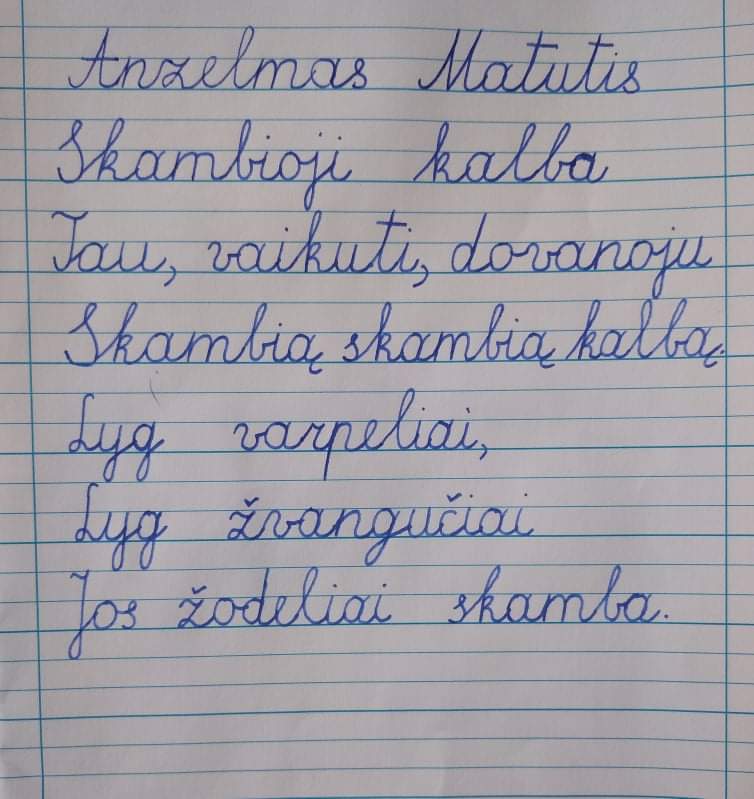 Anzelmas Matutis
Skambioji kalba
Tau, vaikuti, dovanoju
Skambią skambią kalbą.
Lyg varpeliai,
Lyg žvangučiai
Jos žodeliai skamba.